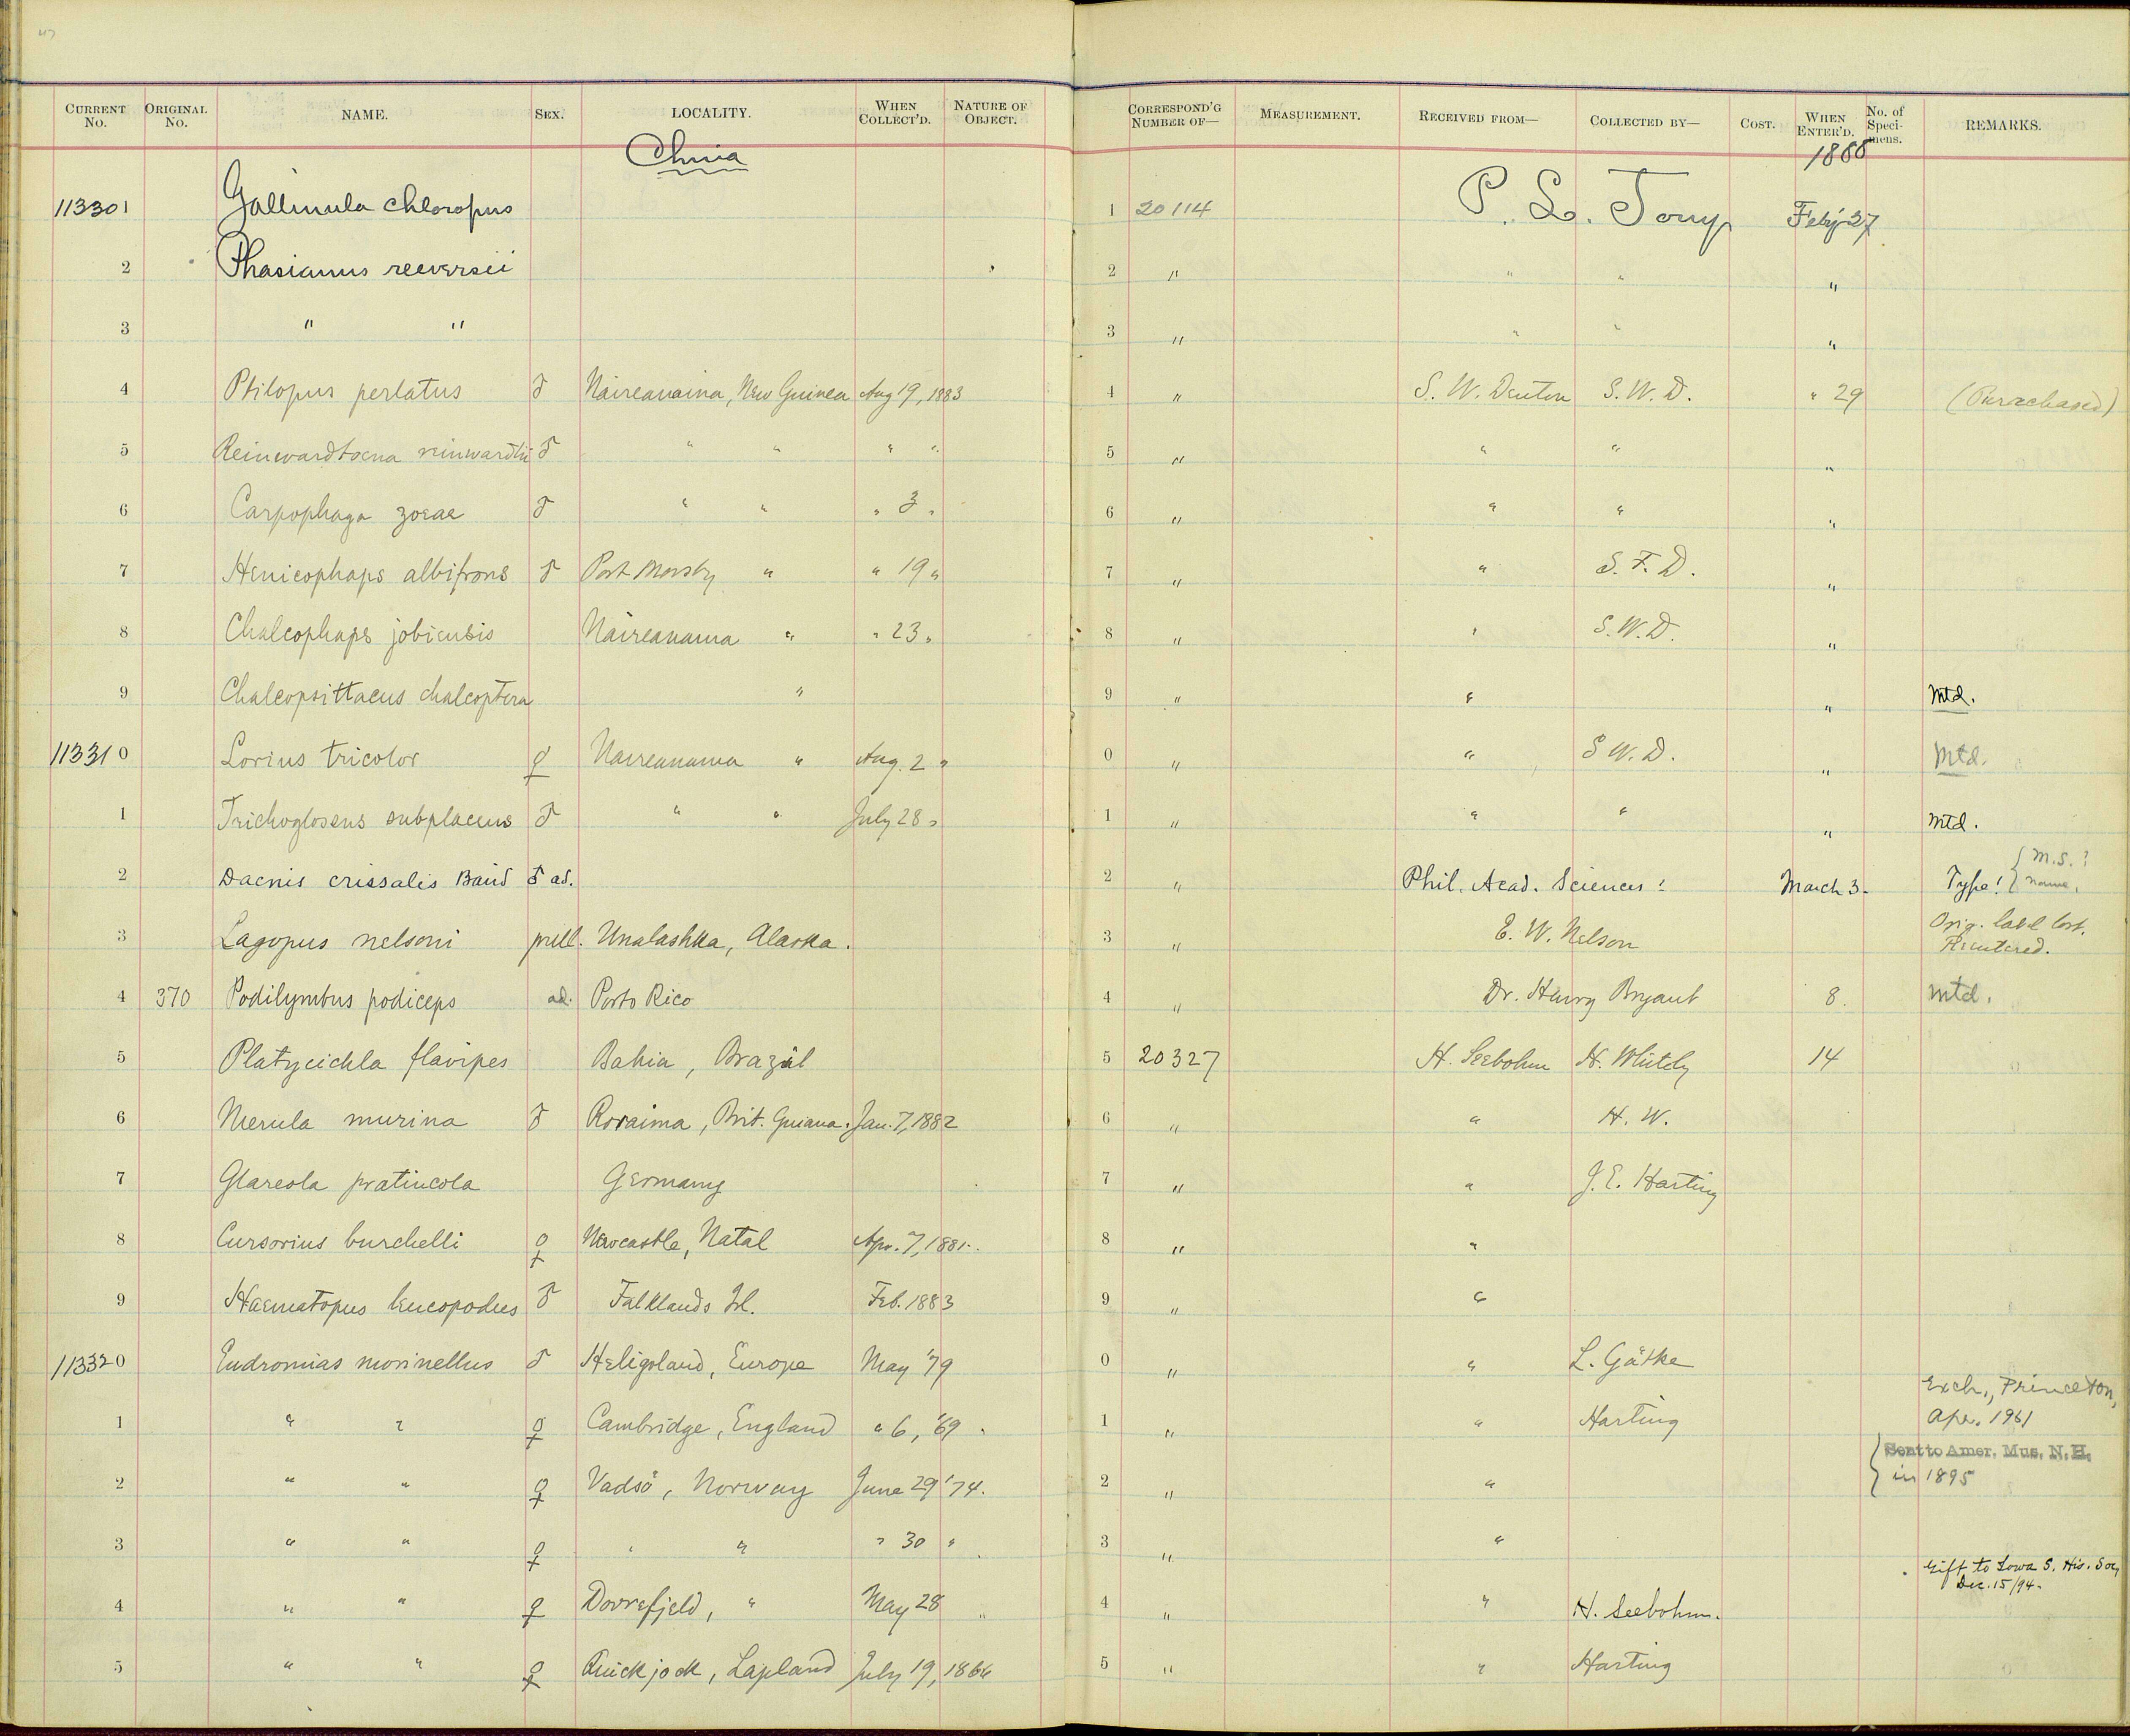 CURRENT No. ORIGINAL No. NAME. SEX. LOCALITY. WHEN COLLECT'D. NATURE OF OBJECT. CORRESPOND'G NUMBER OF— MEASUREMENT. RECEIVED FROM— COLLECTED BY— COST. WHEN ENTER'D. No. of Speci-mens. REMARKS.
China 1888
113301 Gallinula chloropus 1 20114 P. L. Jouy Feby 27
2 Phasianus reeversii 2 " " " "
3 " " 3 " " " "
4 Ptilopus perlatus ♂ Naireanaina, New Guinea Aug 19, 1883 4 " S. W. Denton S. W. D. " 29 (Purchased)
5 Reinwardtoena reinwardtii ♂ " " " " 5 " " " "
6 Carpophaga zoeae ♂ " " " 3 " 6 " " " "
7 Henicophaps albifrons ♂ Port Morsby " " 19 " 7 " " S. F. D. "
8 Chalcophaps jobiensis Naireanama " " 23 " 8 " " S. W. D. "
9 Chalcopsittacus chalcoptera " 9 " " " Mtd.
113310 Lorius tricolor ♀ Naireanama " Aug. 2 " 0 " " S W. D. " Mtd.
1 Trichoglossus subplacens ♂ " " July 28 " 1 " " " " Mtd.
2 Dacnis crissalis Baird ♂ ad. 2 " Phil. Acad. Sciences! March 3. Type! { M.S.? name.
3 Lagopus nelsoni pull. Unalashka, Alaska. 3 " E. W. Nelson Orig. label lost. Reentered.
4 370 Podilymbus podiceps ad. Porto Rico 4 " Dr. Henry Bryant 8. Mtd.
5 Platycichla flavipes Bahia, Brazil 5 20327 H. Seebohm H. Whitely 14
6 Merula murina ♂ Roraima, Brit. Guiana. Jan. 7, 1882 6 " " H. W.
7 Glareola pratincola Germany 7 " " J. E. Harting
8 Cursorius burchelli ♀ Newcastle, Natal Apr. 7, 1881. 8 " "
9 Haematopus leucopodus ♂ Falklands Isl. Feb. 1883 9 " "
113320 Eudromias morinellus ♂ Heligoland, Europe May '79 0 " " L. Gätke
1 " " ♀ Cambridge, England " 6, '69 1 " " Harting Exch., Princeton, Apr. 1961
2 " " ♀ Vadsö, Norway June 29 '74. 2 " " { Sent to Amer. Mus. N. H. in 1895
3 " " ♀ " " " 30 " 3 " "
4 " " ♀ Dovrefjeld, " May 28 " 4 " " H. Seebohm. Gift to Iowa S. His. Soc, Dec. 15/94.
5 " " ♀ Quickjock, Lapland July 19, 1866 5 " " Harting